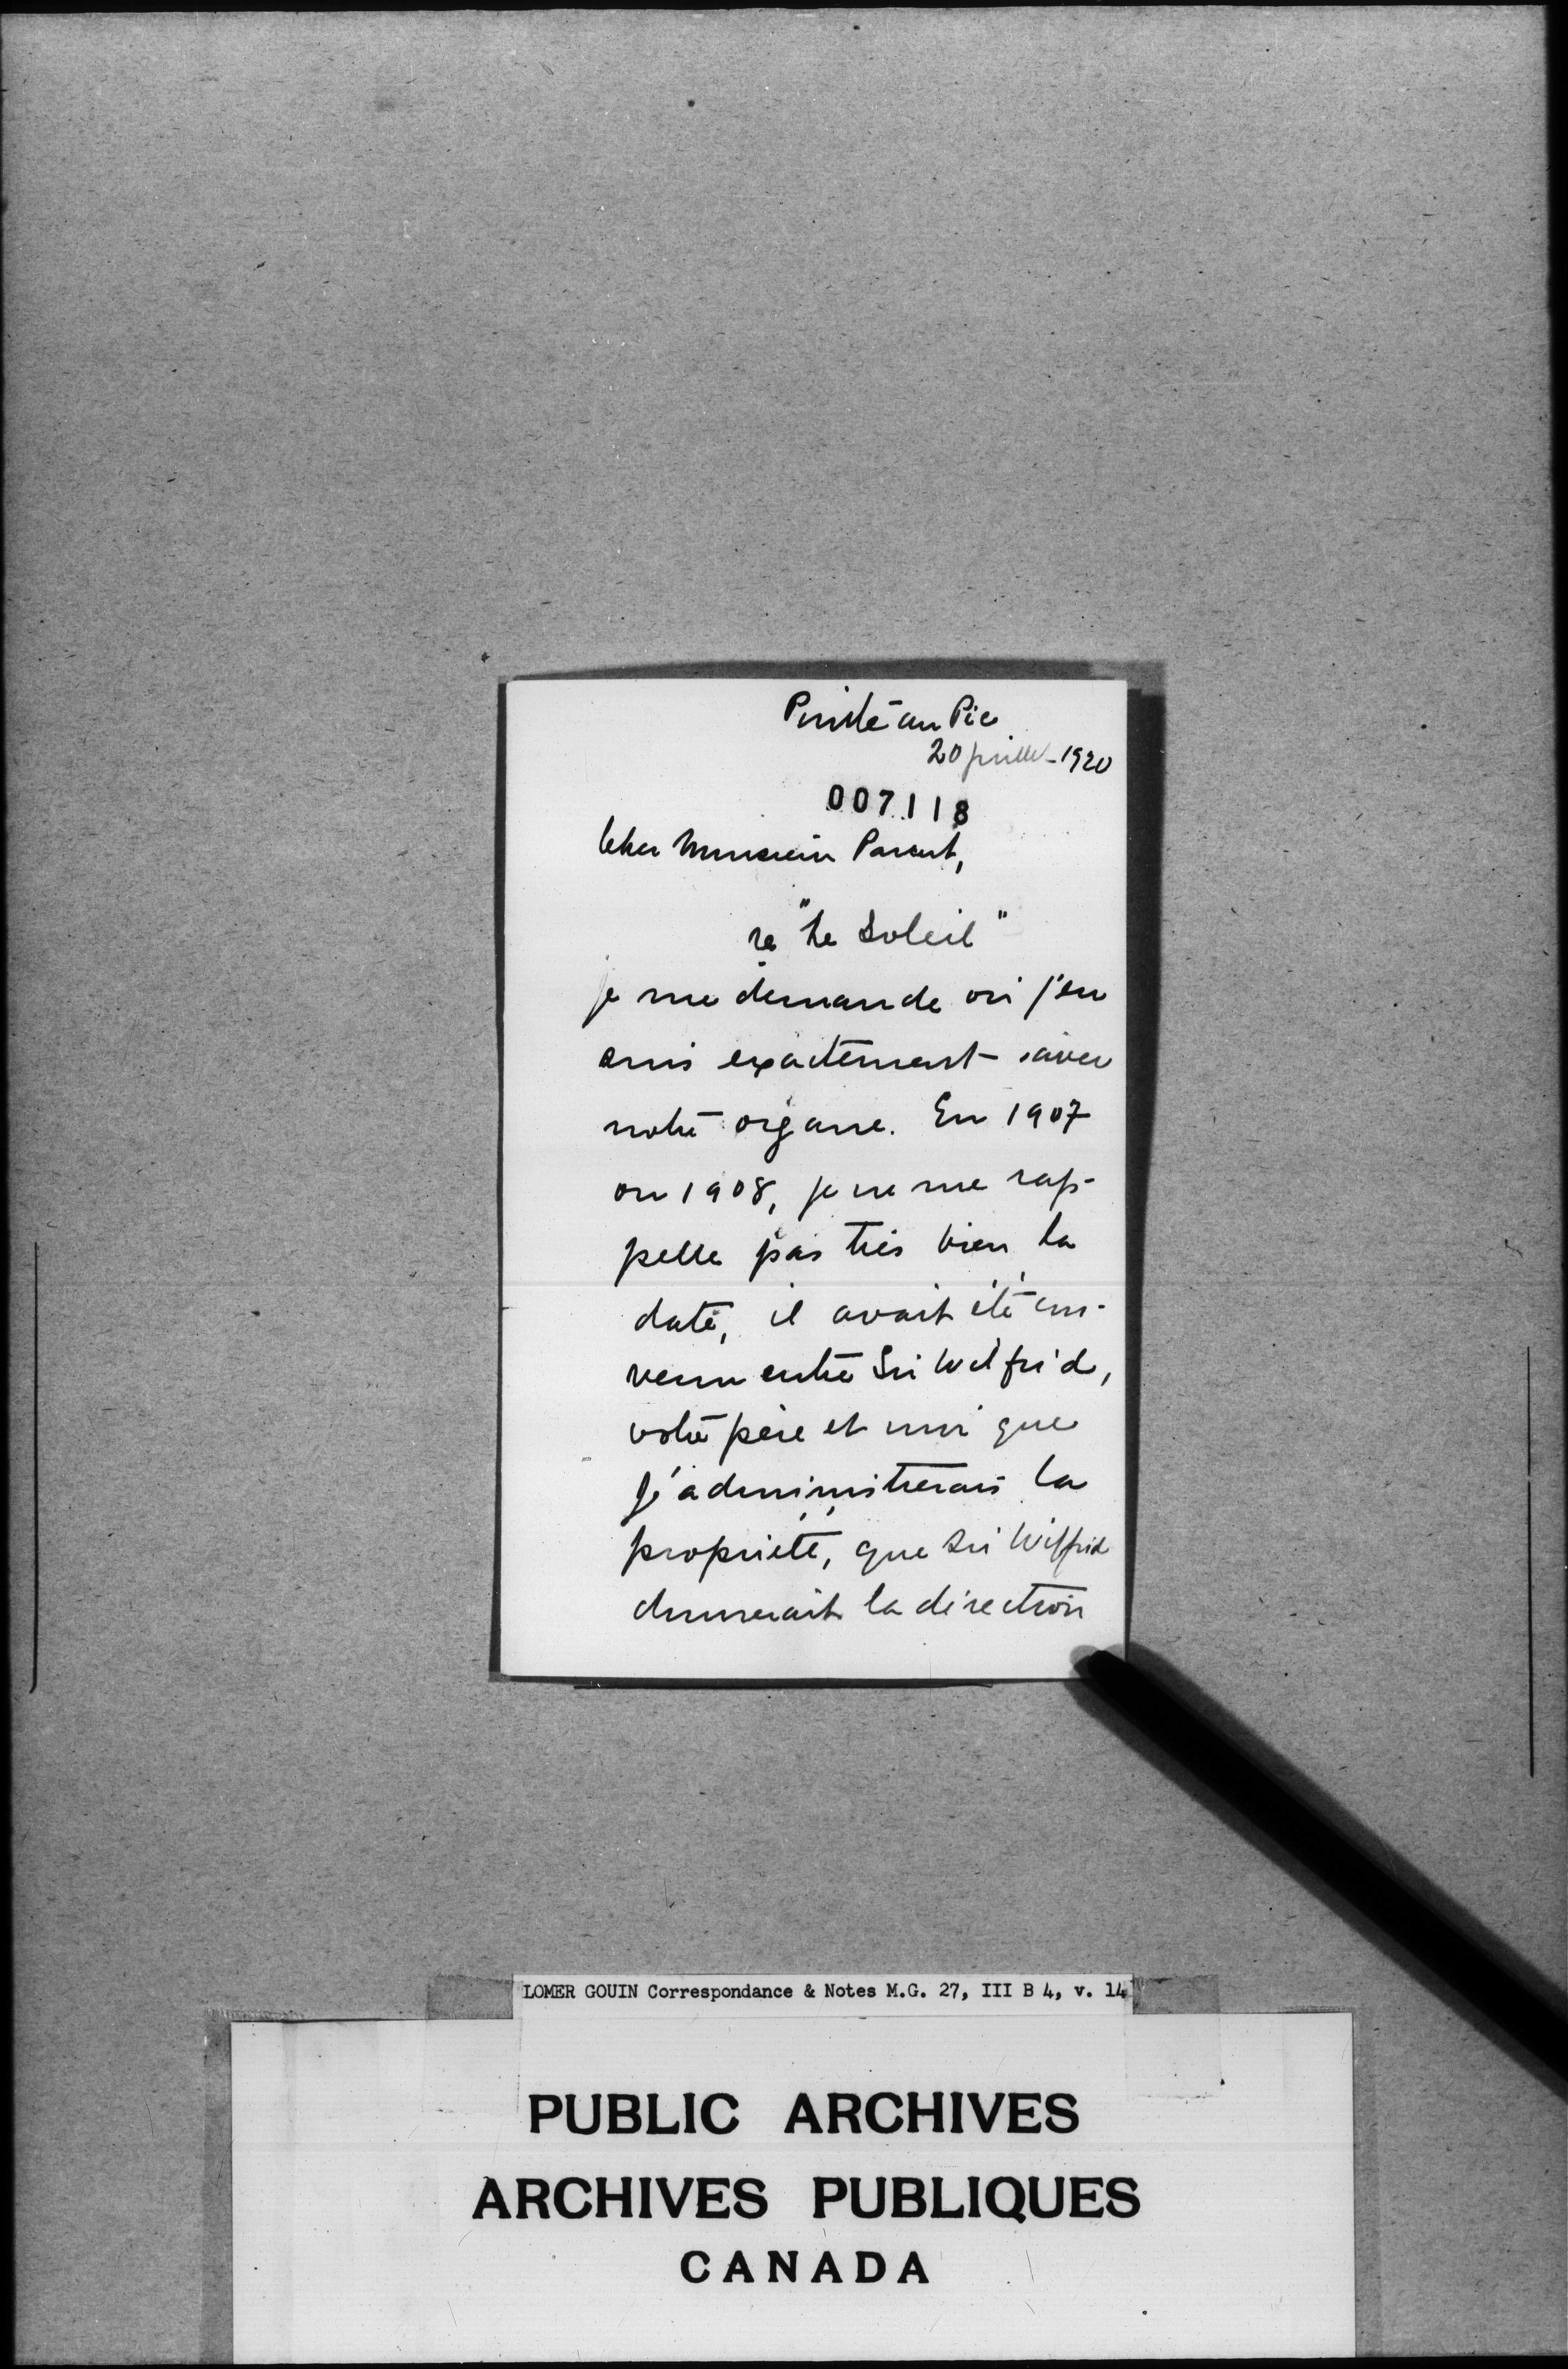 Pointe au Pic
20 juillet - 1920
007118
Cher Monsieur Parent,
re "Le Soleil"
je me demande où j'en
suis exactement avec
notre organe. En 1907
ou 1908, je ne me rap-
pelle pas très bien la
date, il avait été con-
venu entre Sir Wilfrid,
votre père et moi que
j'administrerais la
propriété, que Sir Wilfrid
donnerait la direction
LOMER GOUIN Correspondance & Notes M.G. 27, III B 4, v. 14
PUBLIC ARCHIVES
ARCHIVES PUBLIQUES
CANADA